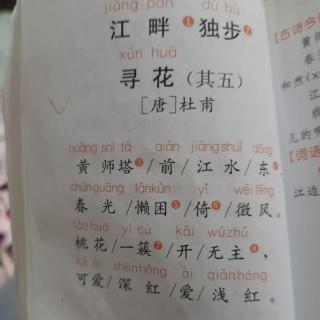 jiāng pàn dú bù
江畔❶独步❷
xún huā
寻花(其五)
[唐]杜甫
huáng shī tǎ qián jiāng shuǐ dōng
黄师塔❸/前/江水/东,
chūn guāng lǎn kùn yǐ wēi fēng
春光/懒困❺/倚❻/微风。
táo huā yí cù kāi wú zhǔ
桃花/一簇❼/开/无主❽,
kě ài shēn hóng ài qiǎn hóng
可爱/深红/爱/浅红。
[古诗今
黄师
春
和煦(x
儿的
[词语
江边